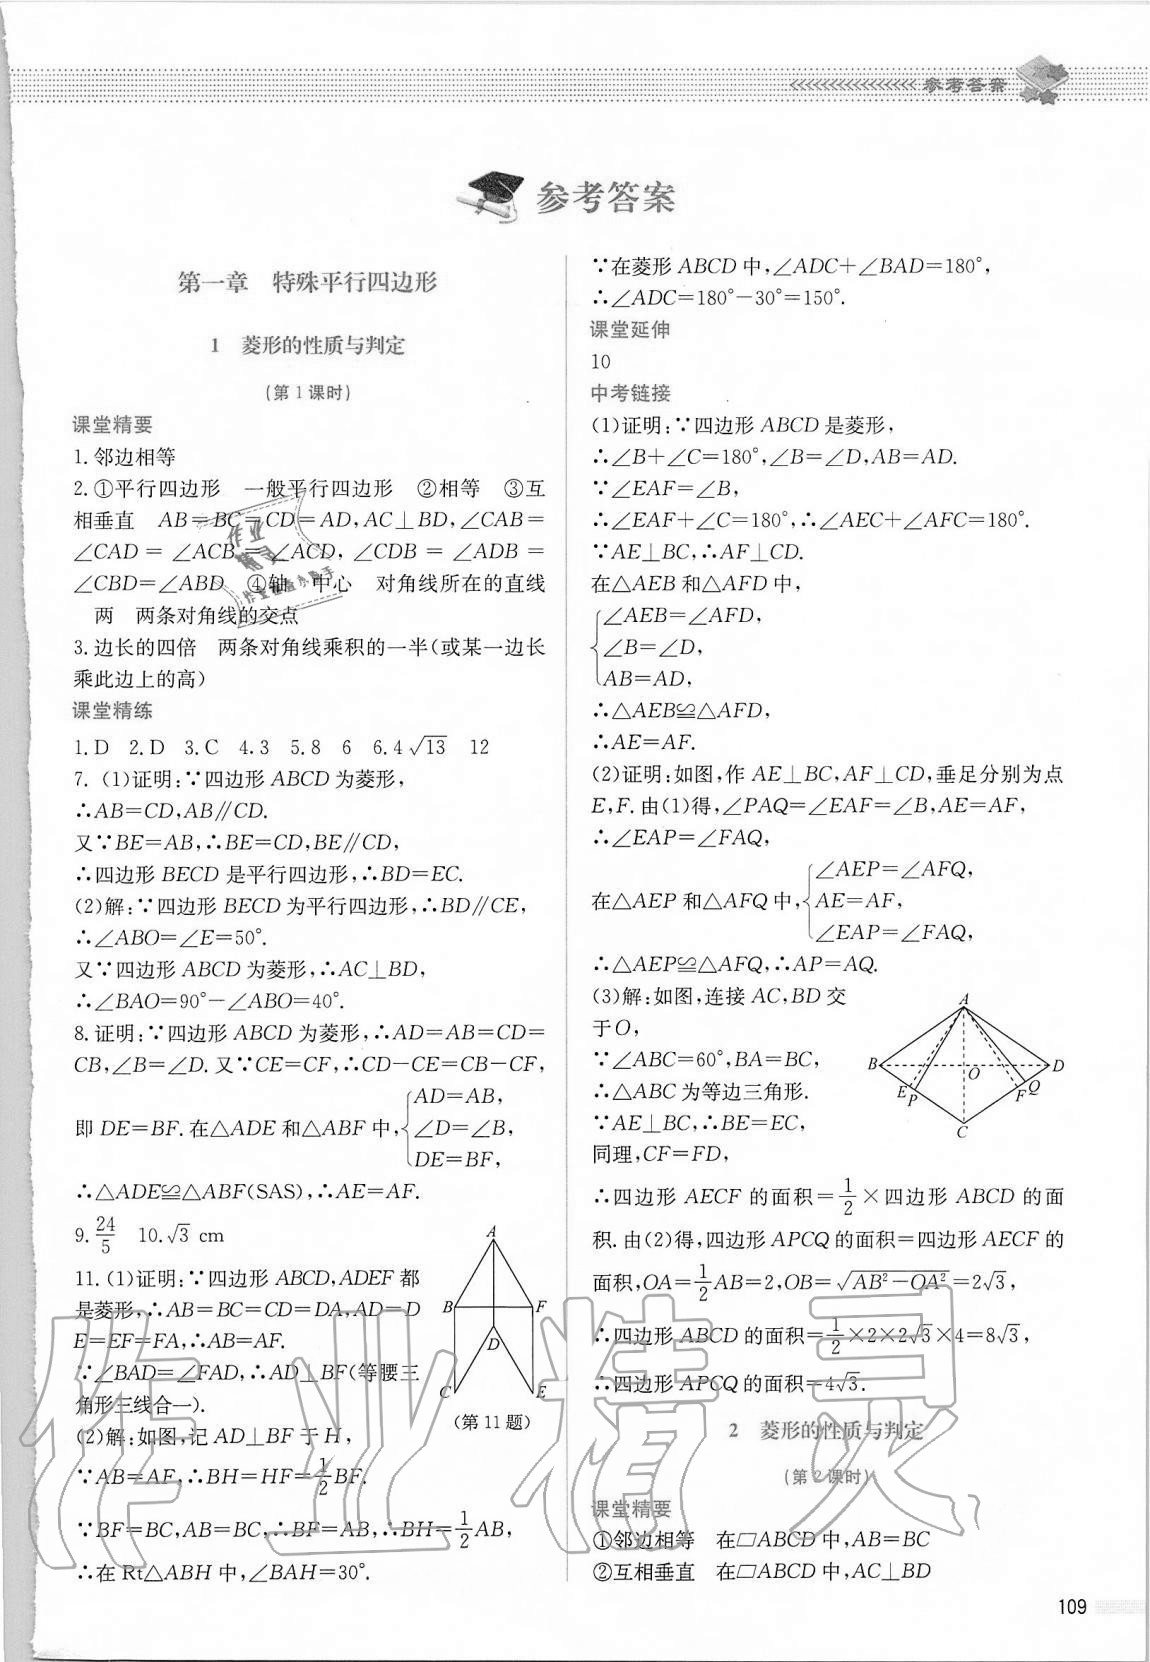 参考答案
参考答案
第一章　特殊平行四边形
1　菱形的性质与判定
(第1课时)
课堂精要
1.邻边相等
2.①平行四边形　一般平行四边形　②相等　③互
相垂直　AB=BC=CD=AD,AC⊥BD,∠CAB=
∠CAD=∠ACB=∠ACD,∠CDB=∠ADB=
∠CBD=∠ABD　④轴　中心　对角线所在的直线
两　两条对角线的交点
3.边长的四倍　两条对角线乘积的一半(或某一边长
乘此边上的高)
课堂精练
1.D　2.D　3.C　4.3　5.8　6　6.4√13　12
7.(1)证明:∵四边形ABCD为菱形,
∴AB=CD,AB∥CD.
又∵BE=AB,∴BE=CD,BE∥CD,
∴四边形BECD是平行四边形,∴BD=EC.
(2)解:∵四边形BECD为平行四边形,∴BD∥CE,
∴∠ABO=∠E=50°.
又∵四边形ABCD为菱形,∴AC⊥BD,
∴∠BAO=90°-∠ABO=40°.
8.证明:∵四边形ABCD为菱形,∴AD=AB=CD=
CB,∠B=∠D.又∵CE=CF,∴CD-CE=CB-CF,
即DE=BF.在△ADE和△ABF中,{AD=AB,
∠D=∠B,
DE=BF,
∴△ADE≌△ABF(SAS),∴AE=AF.
9.24/5　10.√3 cm
11.(1)证明:∵四边形ABCD,ADEF都
是菱形,∴AB=BC=CD=DA,AD=D
E=EF=FA,∴AB=AF.
∵∠BAD=∠FAD,∴AD⊥BF(等腰三
角形三线合一).
A
B
F
D
C
E
(第11题)
(2)解:如图,记AD⊥BF于H,
∵AB=AF,∴BH=HF=1/2BF.
∵BF=BC,AB=BC,∴BF=AB,∴BH=1/2AB,
∴在Rt△ABH中,∠BAH=30°.
∵在菱形ABCD中,∠ADC+∠BAD=180°,
∴∠ADC=180°-30°=150°.
课堂延伸
10
中考链接
(1)证明:∵四边形ABCD是菱形,
∴∠B+∠C=180°,∠B=∠D,AB=AD.
∵∠EAF=∠B,
∴∠EAF+∠C=180°,∴∠AEC+∠AFC=180°.
∵AE⊥BC,∴AF⊥CD.
在△AEB和△AFD中,
{∠AEB=∠AFD,
∠B=∠D,
AB=AD,
∴△AEB≌△AFD,
∴AE=AF.
(2)证明:如图,作AE⊥BC,AF⊥CD,垂足分别为点
E,F.由(1)得,∠PAQ=∠EAF=∠B,AE=AF,
∴∠EAP=∠FAQ,
在△AEP和△AFQ中,{∠AEP=∠AFQ,
AE=AF,
∠EAP=∠FAQ,
∴△AEP≌△AFQ,∴AP=AQ.
(3)解:如图,连接AC,BD交
于O,
∵∠ABC=60°,BA=BC,
∴△ABC为等边三角形.
∵AE⊥BC,∴BE=EC,
同理,CF=FD,
A
B
O
D
E
P
F
Q
C
∴四边形AECF的面积=1/2×四边形ABCD的面
积.由(2)得,四边形APCQ的面积=四边形AECF的
面积,OA=1/2AB=2,OB=√AB²-OA²=2√3,
∴四边形ABCD的面积=1/2×2×2√3×4=8√3,
∴四边形APCQ的面积=4√3.
2　菱形的性质与判定
(第2课时)
课堂精要
①邻边相等　在□ABCD中,AB=BC
②互相垂直　在□ABCD中,AC⊥BD
109
作业精灵